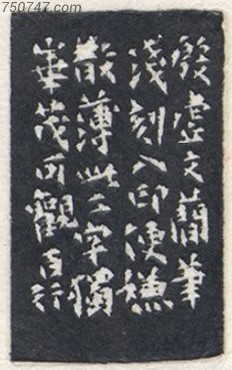 750747.com
殷虚文簡筆
淺刻入印便嫌
散薄此二字獨
華茂可觀百行